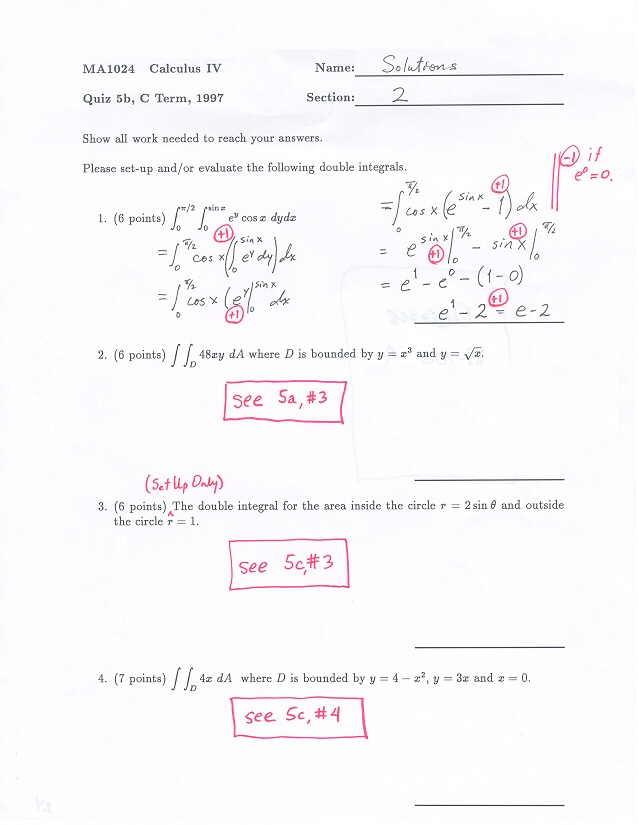 MA1024 Calculus IV Name: Solutions
Quiz 5b, C Term, 1997 Section: 2
Show all work needed to reach your answers.
Please set-up and/or evaluate the following double integrals.
-1 if
e⁰=0.
1. (6 points) ∫₀^{π/2} ∫₀^{sin x} e^y cos x dydx
+1
= ∫₀^{π/2} cos x (∫₀^{sin x} e^y dy) dx
= ∫₀^{π/2} cos x (e^y |₀^{sin x} dx
+1
+1
= ∫₀^{π/2} cos x (e^{sin x} - 1) dx
= e^{sin x} |₀^{π/2} - sin x |₀^{π/2}
+1 +1
= e¹ - e⁰ - (1-0)
+1
e¹ - 2 = e-2
2. (6 points) ∫∫_D 48xy dA where D is bounded by y = x³ and y = √x.
see 5a, #3
(Set Up Only)
3. (6 points) ^ The double integral for the area inside the circle r = 2 sin θ and outside
the circle r = 1.
see 5c, #3
4. (7 points) ∫∫_D 4x dA where D is bounded by y = 4 − x², y = 3x and x = 0.
see 5c, #4